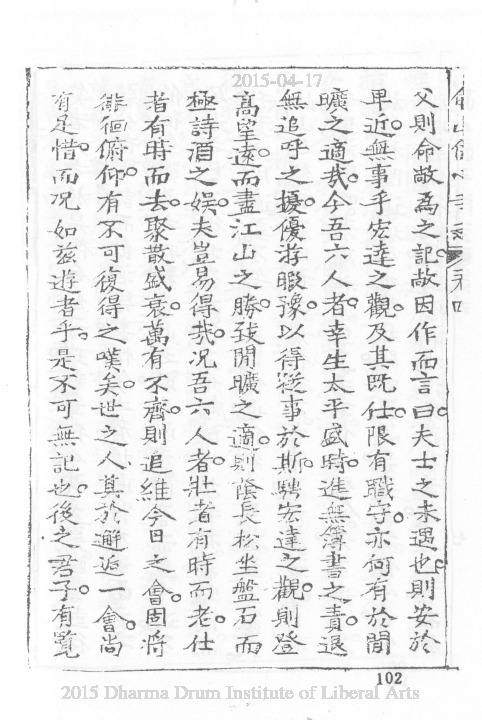 2015-04-17
父則命敞為之記敞因作而言曰夫士之未遇也則安於
卑近無事乎宏達之觀及其既仕限有職守亦何有於閒
曠之適哉今吾六人者幸生太平盛時進無簿書之責退
無追呼之擾優游暇豫以得從事於斯騁宏達之觀則登
高望遠而盡江山之勝致閒曠之適則蔭長松坐盤石而
極詩酒之娛夫豈易得哉况吾六人者壯者有時而老仕
者有時而去聚散盛衰萬有不齊則追維今日之會固將
徘徊俯仰有不可復得之嘆矣世之人其於邂逅一會尚
有足惜而况如茲遊者乎是不可無記也後之君子有覽
102
2015 Dharma Drum Institute of Liberal Arts